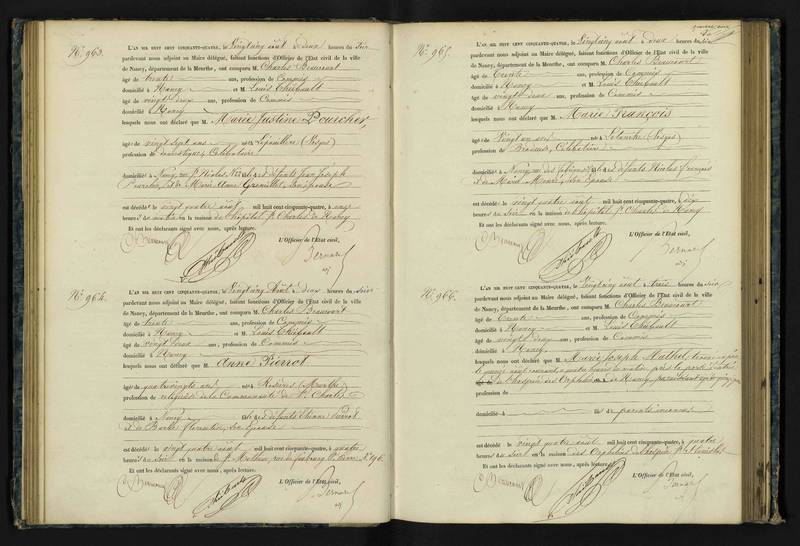 N° 963.
L'AN MIL HUIT CENT CINQUANTE-QUATRE, le Vingt cinq août à deux heures du soir
pardevant nous adjoint au Maire délégué, faisant fonctions d'Officier de l'État civil de la ville
de Nancy, département de la Meurthe, ont comparu M. Charles Beaucourt
âgé de trente ans, profession de Commis
domicilié à Nancy et M. Louis Thiébault
âgé de vingt deux ans, profession de Commis
domicilié à Nancy
lesquels nous ont déclaré que M. Marie Justine Pourcher,
âgée de vingt sept ans née à (Vosges)
profession de domestique, Célibataire
domiciliée à Nancy, rue St Nicolas fille de défunts Jean Joseph
Pourcher, et de Marie Anne son épouse
est décédée le vingt quatre août mil huit cent cinquante-quatre, à onze
heures du matin en la maison de l'hôpital St Charles de Nancy
Et ont les déclarants signé avec nous, après lecture.
L'Officier de l'État civil,
C. Beaucourt
Thiébault
Bernard
adj
N° 964.
L'AN MIL HUIT CENT CINQUANTE-QUATRE, le Vingt cinq Août à deux heures du soir
pardevant nous adjoint au Maire délégué, faisant fonctions d'Officier de l'État civil de la ville
de Nancy, département de la Meurthe, ont comparu M. Charles Beaucourt
âgé de trente ans, profession de Commis
domicilié à Nancy et M. Louis Thiébault
âgé de vingt deux ans, profession de Commis
domicilié à Nancy
lesquels nous ont déclaré que M. Anne Pierrot
âgée de quatre vingts ans née à Rosières (Meurthe)
profession de religieuse de la Communauté de St Charles
domiciliée à Nancy fille de défunts Etienne Pierrot
et de Barbe Florentin, son épouse
est décédée le vingt quatre août mil huit cent cinquante-quatre, à quatre
heures du soir en la maison de St Mathieu, rue du faubourg St Pierre N°
Et ont les déclarants signé avec nous, après lecture.
L'Officier de l'État civil,
C. Beaucourt
Thiébault
Bernard
adj
N° 965.
L'AN MIL HUIT CENT CINQUANTE-QUATRE, le Vingt cinq août à deux heures du soir
pardevant nous adjoint au Maire délégué, faisant fonctions d'Officier de l'État civil de la ville
de Nancy, département de la Meurthe, ont comparu M. Charles Beaucourt
âgé de trente ans, profession de Commis
domicilié à Nancy et M. Louis Thiébault
âgé de vingt deux ans, profession de Commis
domicilié à Nancy
lesquels nous ont déclaré que M. Marie François
âgée de Vingt un ans née à (Vosges)
profession de Brodeuse, Célibataire
domiciliée à Nancy, rue des fille de défunts Nicolas François
et de Marie son épouse
est décédée le vingt quatre août mil huit cent cinquante-quatre, à
heures du soir en la maison de l'hôpital St Charles de Nancy
Et ont les déclarants signé avec nous, après lecture.
L'Officier de l'État civil,
C. Beaucourt
Thiébault
Bernard
adj
N° 966.
L'AN MIL HUIT CENT CINQUANTE-QUATRE, le Vingt cinq août à trois heures du soir
pardevant nous adjoint au Maire délégué, faisant fonctions d'Officier de l'État civil de la ville
de Nancy, département de la Meurthe, ont comparu M. Charles Beaucourt
âgé de trente ans, profession de Commis
domicilié à Nancy et M. Louis Thiébault
âgé de vingt deux ans, profession de Commis
domicilié à Nancy
lesquels nous ont déclaré que M. Marie Joseph
le quinze août courant, à quatre heures du matin, près la porte d'entrée
de l'hospice des Orphelins de Nancy, paraissant
profession de
domicilié à de parents inconnus
est décédé le vingt quatre août mil huit cent cinquante-quatre, à quatre
heures du soir en la maison des Orphelins
Et ont les déclarants signé avec nous, après lecture.
L'Officier de l'État civil,
C. Beaucourt
Thiébault
Bernard
adj